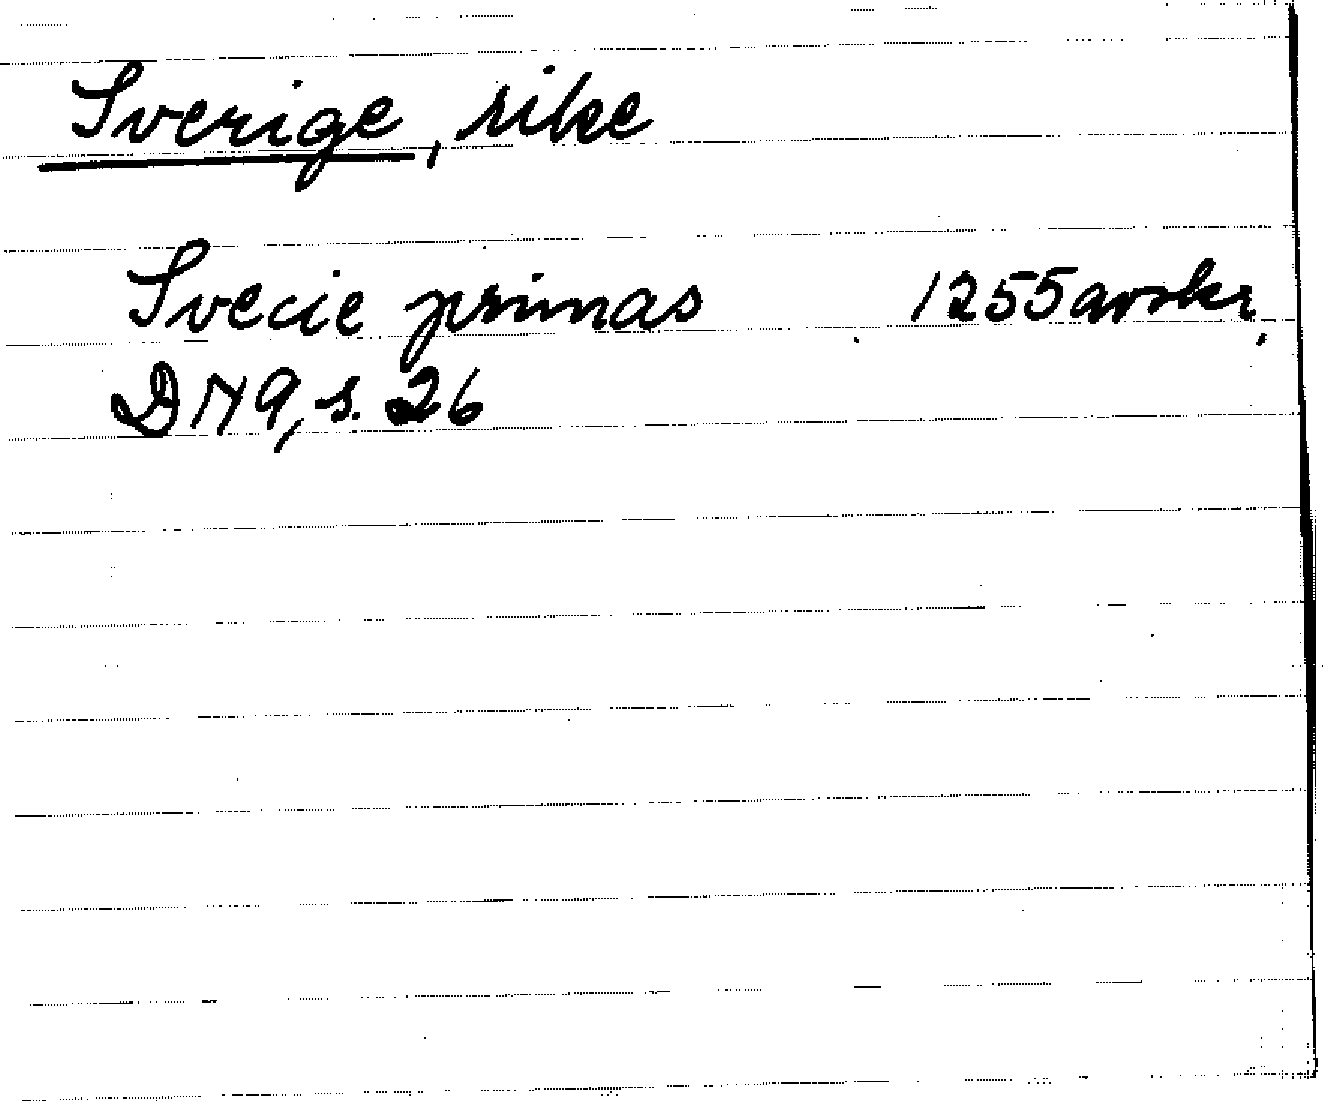 Sverige, rike
Svecie primas 1255 avskr,
DN 9, s. 26